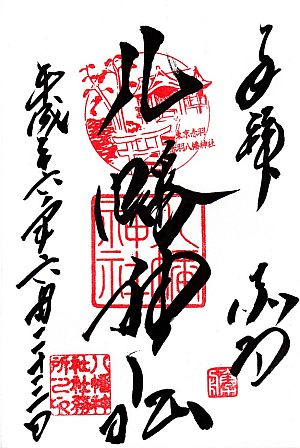 奉拝
赤羽
八幡神社
東京赤羽
赤羽八幡神社
八幡
神社
平成二十六年六月
八幡神
社社務
所之印